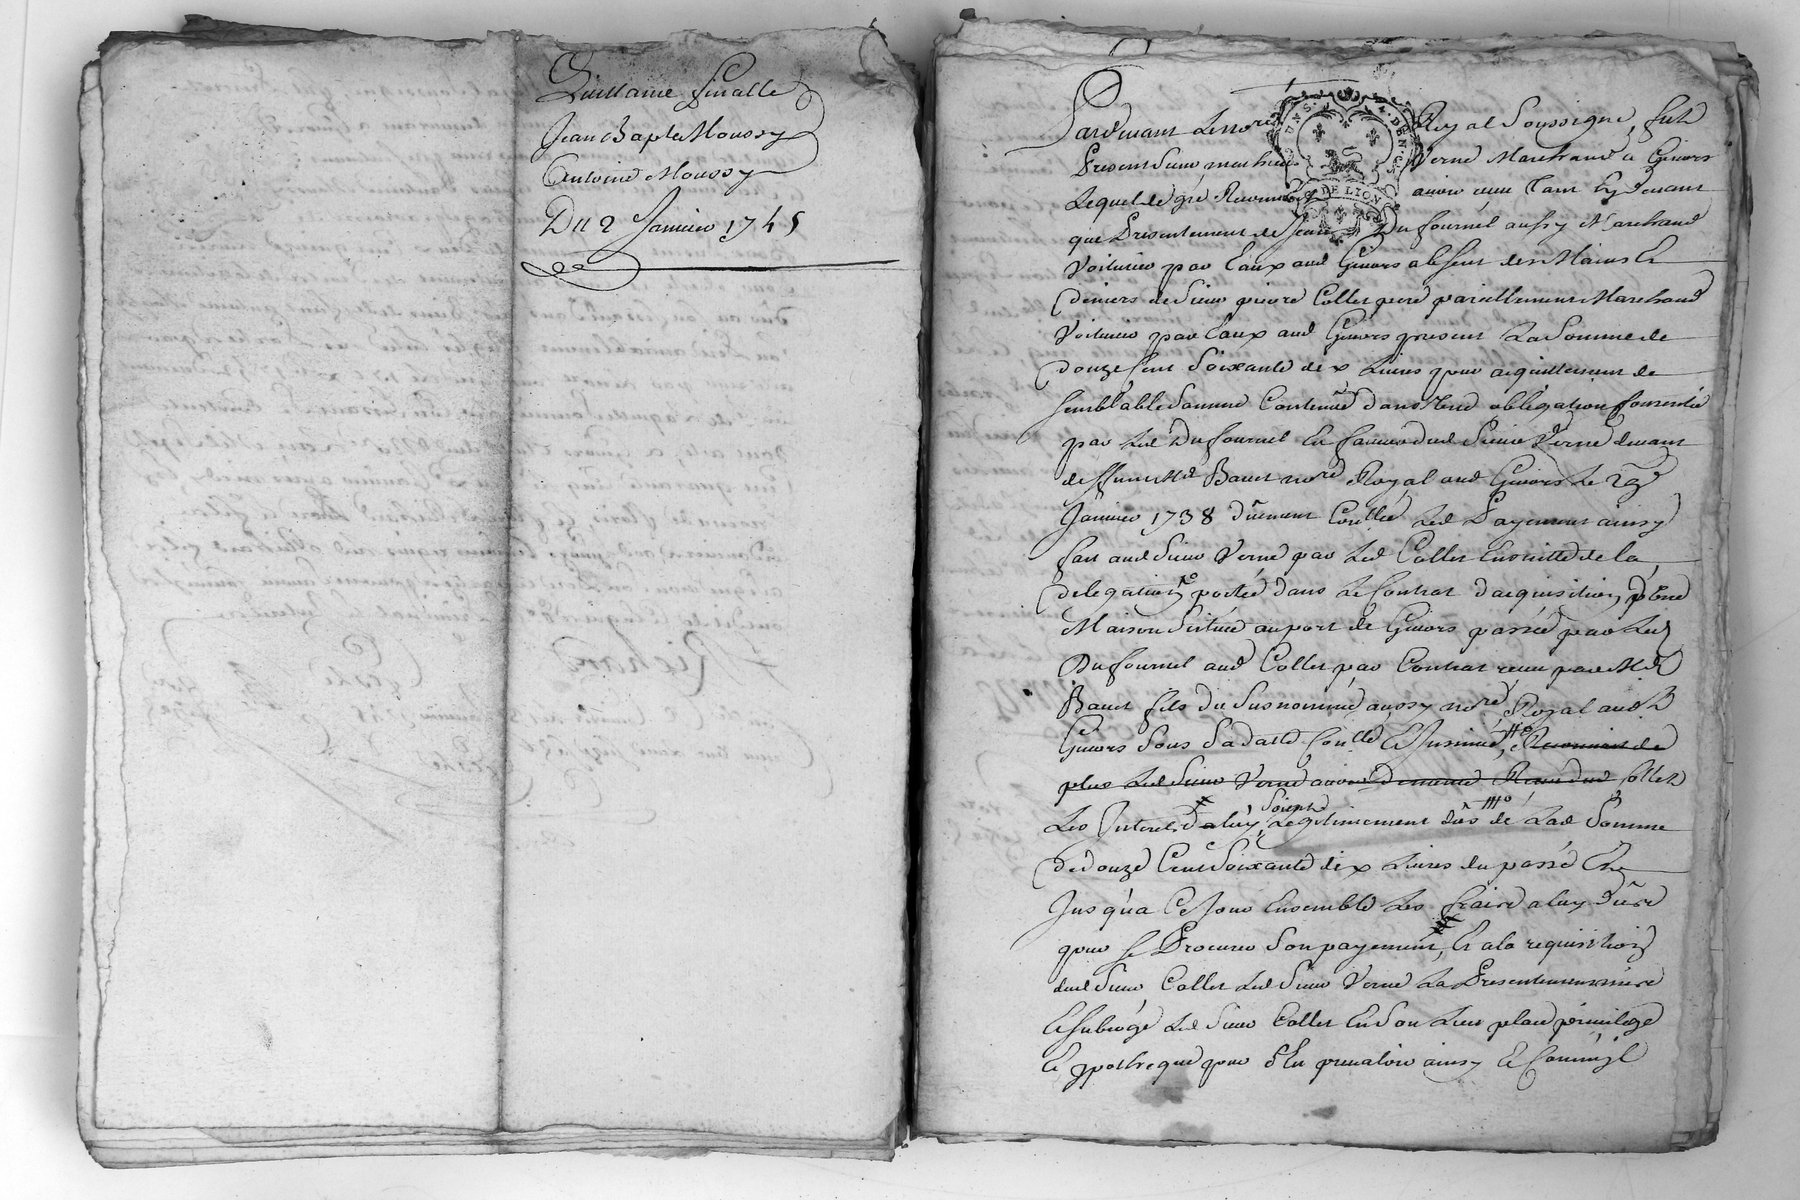 Guillaume
Jean Bapte Moussy
Antoine Moussy
Du 2 Janvier 1745
Pardevant Le nore Royal Soussigné, fut
UN S. 4. DEN. G. DE LION
Present Sieur Verne Marchand a Givors
Lequel de gré avoir
que Presentement de Jean Dufournel aussy Marchand
Voiturier par Eaux aud Givors absent des Mains Et
deniers de Sieur pierre Collet pareillement Marchand
Voiturier par Eaux aud Givors present La Somme de
douze Cent Soixante dix Livres pour acquittement de
semblable Somme Contenue dans Une obligation
par Led Dufournel En faveur dud Sieur Verne devant
Baret nore Royal aud Givors Le
Janvier 1738 düement Con͠tlée Led Payement ainsy
fait aud Sieur Verne par Led Collet Ensuitte de la
delegation portée dans Le Contrat d'acquisition, d'Une
Maison Scituée au port de Givors passée par Led
Dufournel aud Collet par Contrat receu par Me
Baret fils du Susnommé aussy nore Royal aud
Givors Sous Sa datte Con͠tlé Et Insinué,
plus Led Sieur Verne avoir Collet
Les Interets a luy Legitimement dûs de Lad Somme
de douze Cent Soixante dix Livres du passé Et
Jusqu'a Ce Jour Ensemble Les fraix a luy
pour se Procurer Son payement, Et a la requisition
dud Sieur Collet Led Sieur Verne La
Et subrogé Led Sieur Collet En Son Lieu place privilege
Et ypotheque pour S'En prevaloir ainsy Et Comme Il